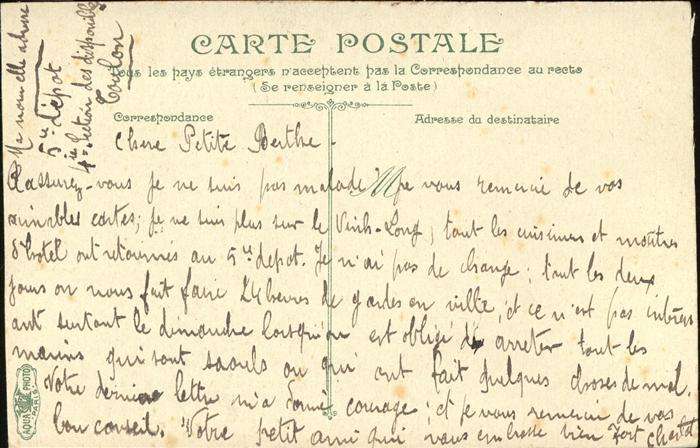 Ma nouvelle adresse
5me dépôt
4me Section des disponibles
Toulon
CARTE POSTALE
Tous les pays étrangers n'acceptent pas la Correspondance au recto
(Se renseigner à la Poste)
Correspondance
Adresse du destinataire
Chere Petite Berthe -
Rassurez-vous je ne suis pas malade je vous remercie de vos
aimables cartes; je ne suis plus sur le Vinh-Long; tout les cuisiniers et maitres
d'hotel ont retournés au 5me depot. Je n'ai pas de change; tout les deux
jours on nous fait faire 24 heures de gardes en ville, et ce n'est pas interess
ant surtout le dimanche lorsqu'on est obligé d' arreter tout les
marins qui sont saouls ou qui ont fait quelques choses de mal.
Votre derniere lettre m'a donné courage; et je vous remercie de vos
bon conseil. Votre petit ami qui vous embrasse bien fort Charles
AQUA PHOTO
PARIS